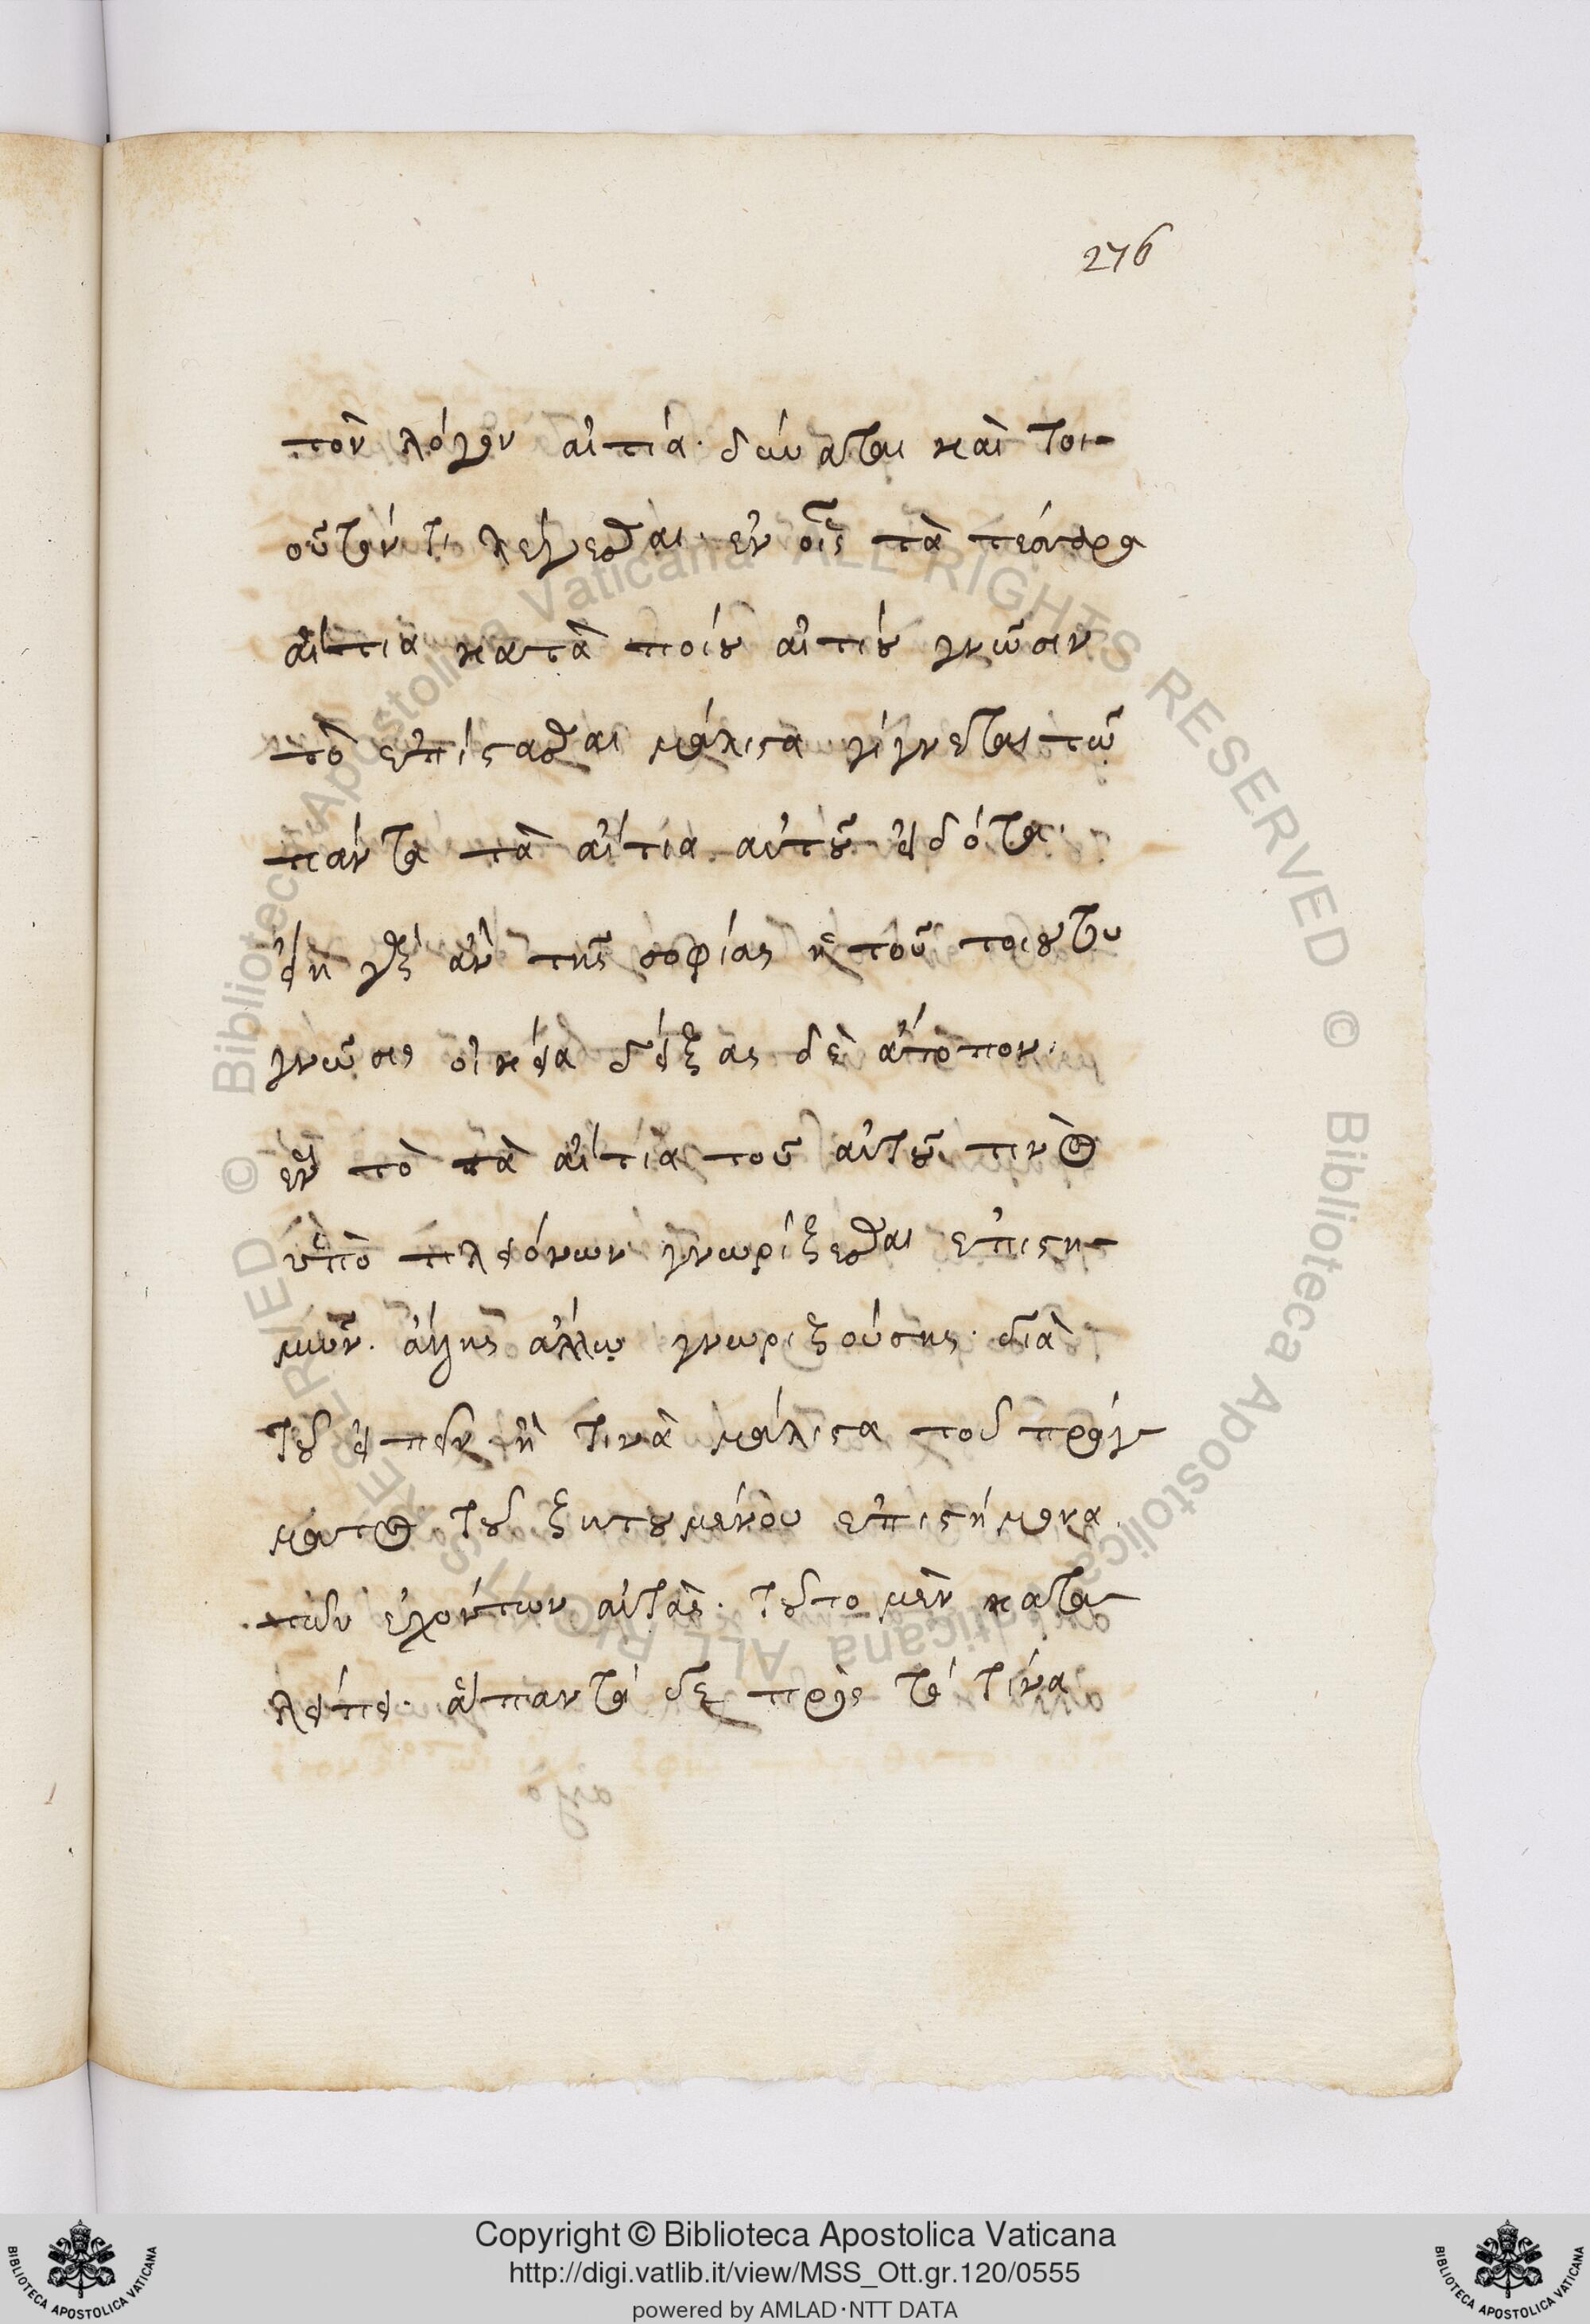 276
τὸν λόγον αἰτία· δύναται καὶ τοι-
οῦτόν τι λέγεσθαι· ἐν οἷς τὰ τέσσαρα
αἴτια κατὰ ποίου αἰτίου γνῶσιν
τὸ ἐπίστασθαι μάλιστα γίγνεται τῶ
πάντα τὰ αἴτια αὐτοῦ εἰδότα·
εἴη γὰρ ἂν τῆς σοφίας ἡ τοῦ τοιούτου
γνῶσις οἰκεία δείξας δὲ ἄτοπον·
ἓν τὸ τὰ αἴτια τοῦ αὐτοῦ τινὸς
ὑπὸ πλειόνων γνωρίζεσθαι ἐπιστη-
μῶν· ἄλλης ἄλλω γνωριζούσης· διὰ
τοῦ εἰπεῖν ἢ τινὰ μάλιστα τοῦ πράγ-
ματος τοῦ ζητουμένου ἐπιστήμονα
τῶν ἐχόντων αὐτάς· τοῦτο μὲν κατα-
λείπει· ἅπαντα δὲ πρὸς τὸ τίνα
Copyright © Biblioteca Apostolica Vaticana
http://digi.vatlib.it/view/MSS_Ott.gr.120/0555
powered by AMLAD·NTT DATA
BIBLIOTECA APOSTOLICA VATICANA
BIBLIOTECA APOSTOLICA VATICANA
© Biblioteca Apostolica Vaticana ALL RIGHTS RESERVED © Biblioteca Apostolica Vaticana ALL RIGHTS RESERVED